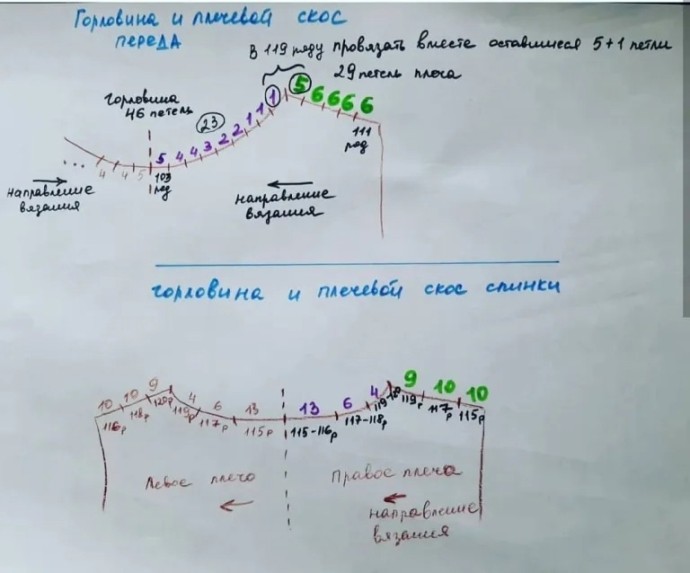 Горловина и плечевой скос
ПЕРЕДА
В 119 ряду провязать вместе оставшиеся 5+1 петли
29 петель плеча
горловина
46 петель
23
5 4 4 3 2 2 1 1 1
5 6 6 6 6
111
ряд
103
ряд
... 4 4 5
направление
вязания
направление
вязания
горловина и плечевой скос спинки
10 10 9 4 6 13
13 6 4 9 10 10
116р 118р 120р 119р 117р 115р
115-116р 117-118р 119р 117р 115р
Левое плечо
Правое плечо
направление
вязания